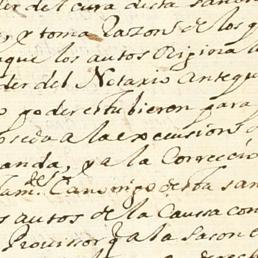 der del cura desta san
y toma Razon de los q
que los autos Rigina
der del Notario Anteque
poder estubieron para
a la execusion d
anda, y a la Correcció
Canonigo desta san
s autos de la Caussa con
Provissor q a la sason e